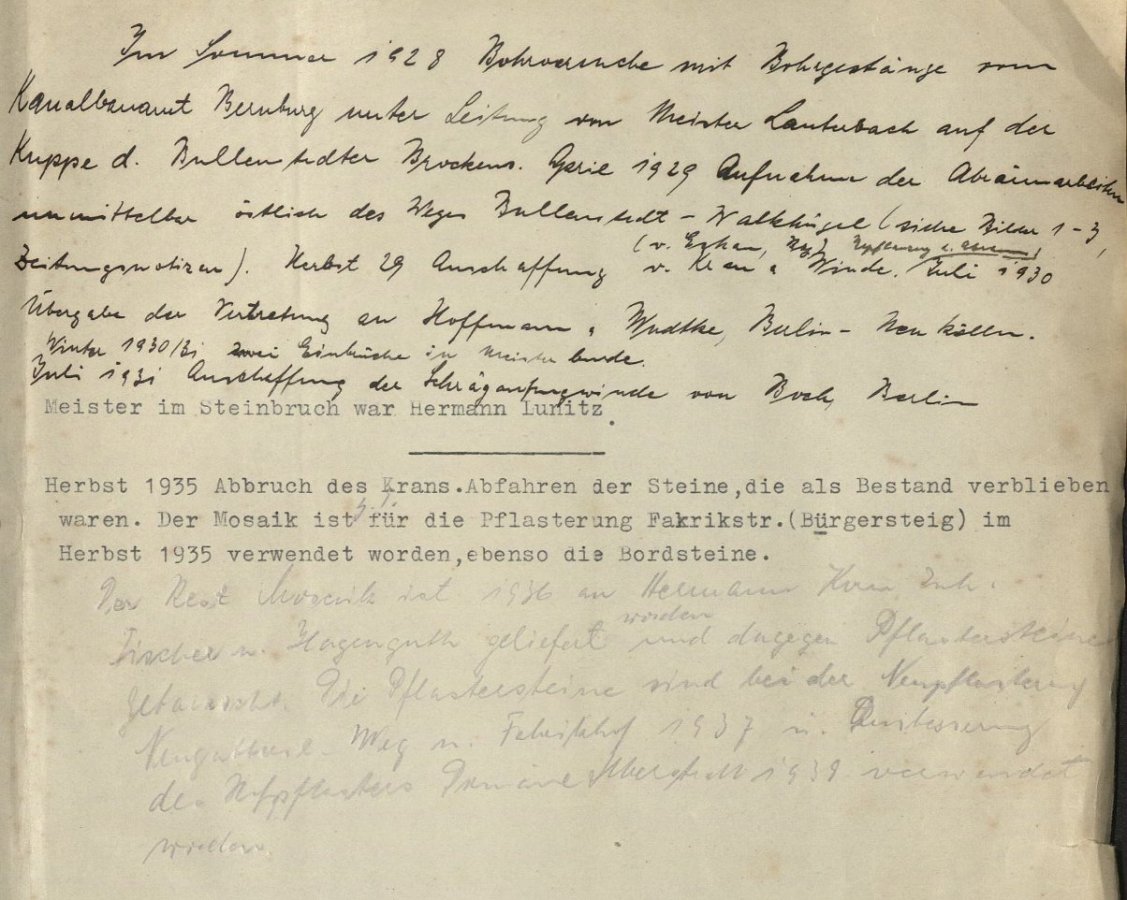 Im Sommer 1928 Bohrversuche mit Bohrgestänge vom
Kanalbauamt Bernburg unter Leitung von Meister Lauterbach auf der
Kuppe d. Bullenstedter Brockens. April 1929 Aufnahme der Abräumarbeiten
unmittelbar östlich des Weges Bullenstedt - Walkhügel (siehe Bilder 1-3,
(v.
Zeitungsnotizen). Herbst 29 Anschaffung v. Kran u Winde. Juli 1930
Übergabe der Vertretung an Hoffmann u Wudtke, Berlin - Neu kölln.
Winter 1930/31 zwei Einbrüche in Meister bude.
Juli 1931 Anschaffung der Schrägaufzugwinde von Bock, Berlin
Meister im Steinbruch war Hermann Lunitz.
Herbst 1935 Abbruch des Krans.Abfahren der Steine,die als Bestand verblieben
waren. Der Mosaik ist für die Pflasterung Fakrikstr.(Bürgersteig) im
Herbst 1935 verwendet worden,ebenso die Bordsteine.
Der Rest Mosaik ist 1936 an Hermann Inh.
worden
Fischer u. Hagenguth geliefert und dagegen Pflastersteine
getauscht. Die Pflastersteine sind bei der Neupflasterung
Weg u. Fabrikhof 1937 u. Ausbesserung
des Hofpflasters Domäne 1939 verwendet
worden.